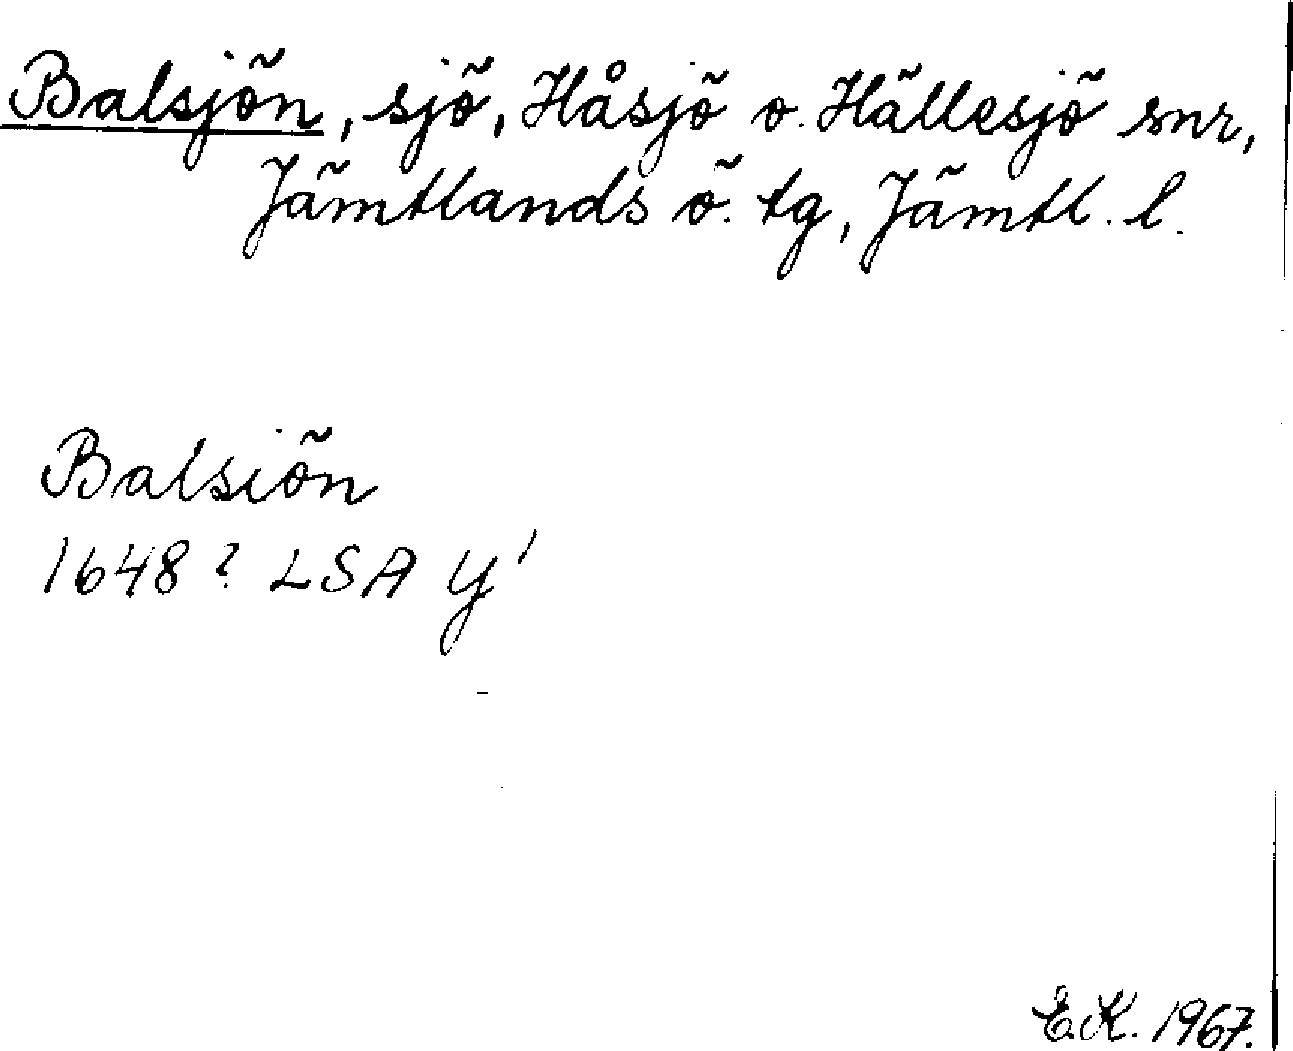 Balsjön, sjö, Håsjö o. Hällesjö snr,
Jämtlands ö. tg, Jämtl. l.
Balsiön
1648? LSA Y¹
E.K. 1967.